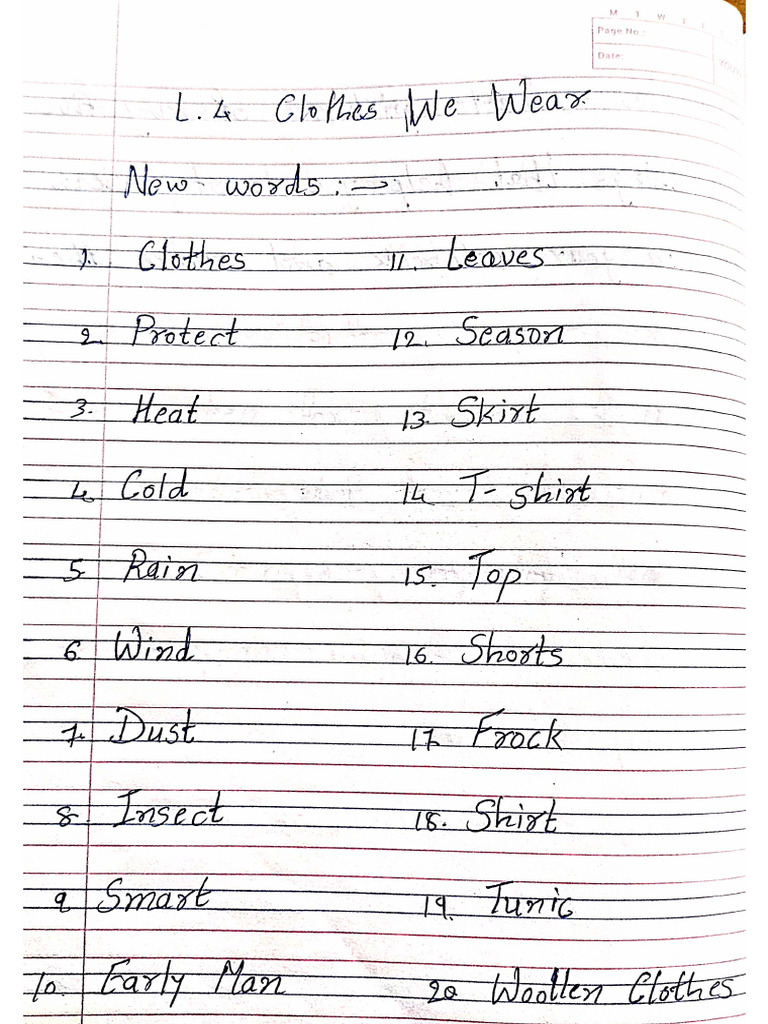 M T W T F S
Page No.:
Date:
L.4 Clothes We Wear
New words :→
1. Clothes 11. Leaves
2. Protect 12. Season
3. Heat 13. Skirt
4. Cold 14. T-shirt
5. Rain 15. Top
6. Wind 16. Shorts
7. Dust 17. Frock
8. Insect 18. Shirt
9. Smart 19. Tunic
10. Early Man 20. Woollen Clothes